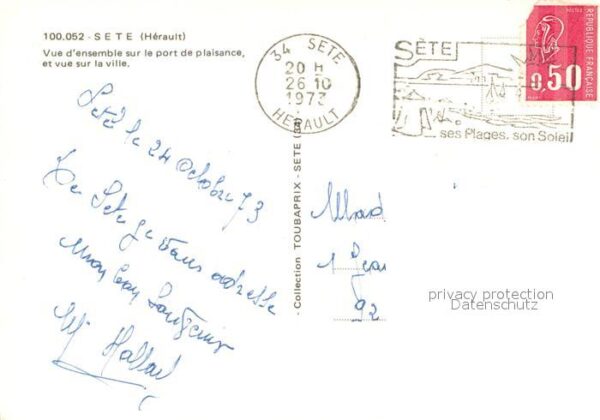 100.052 - SETE (Hérault)
Vue d'ensemble sur le port de plaisance,
et vue sur la ville.
34 SETE
20 H
26 - 10
1973
HERAULT
SÈTE
ses Plages, son Soleil
POSTES
RÉPUBLIQUE FRANÇAISE
0,50
Sète le 24 Octobre 73
De Sète je vous adresse
mon bon Souvenir
- Collection TOUBAPRIX - SETE (34)
Mad
1
92
privacy protection
Datenschutz